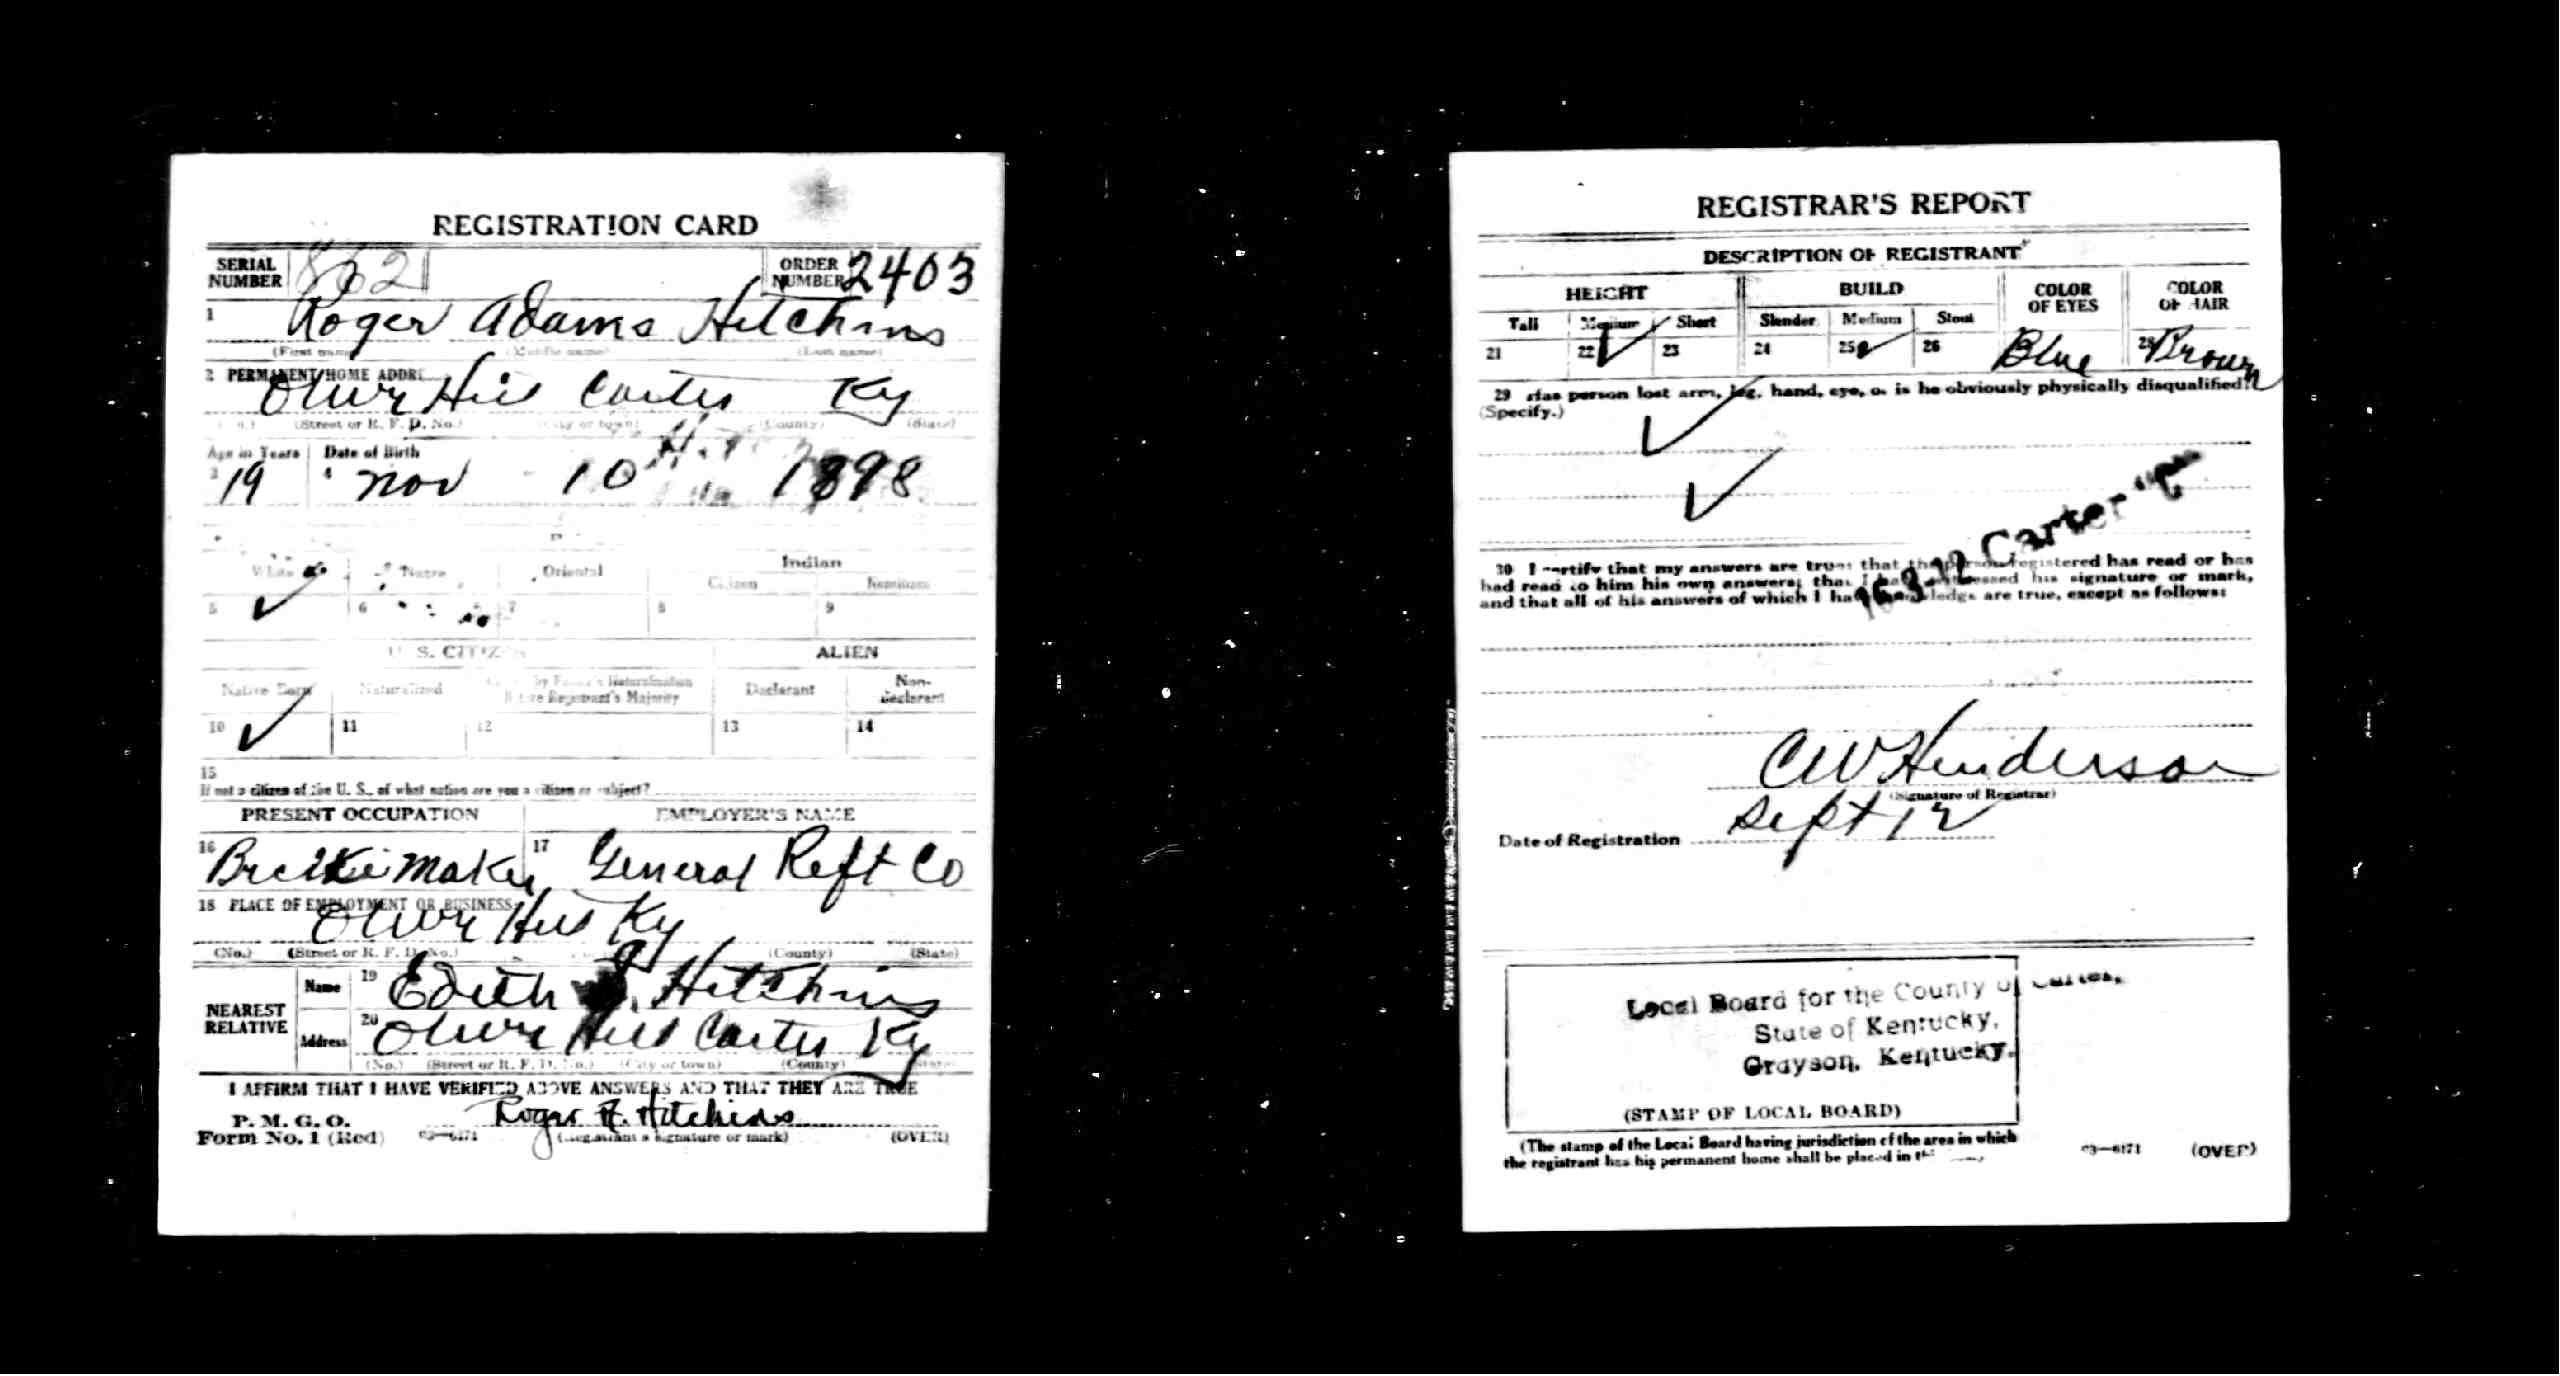 REGISTRATION CARD
SERIAL NUMBER 862 ORDER NUMBER 2403
1 Roger Adams Hitchins
(First name) (Middle name) (Last name)
2 PERMANENT HOME ADDR
Olive Hill Carter Ky
(Street or R. F. D. No.) (City or town) (County) (State)
Age in Years Date of Birth
3 19 4 Nov 10 1898
White Negro Oriental Indian
Citizen Noncitizen
5 ✓ 6 7 8 9
U. S. CITIZEN ALIEN
Native Born Naturalized by Father's Naturalization Before Registrant's Majority Declarant Non-declarant
10 ✓ 11 12 13 14
15
If not a citizen of the U. S., of what nation are you a citizen or subject?
PRESENT OCCUPATION EMPLOYER'S NAME
16 17 General Reft Co
18 PLACE OF EMPLOYMENT OR BUSINESS
Olive Hill Ky
(No.) (Street or R. F. D. No.) (County) (State)
NEAREST RELATIVE
Name 19 Edith Hitchins
Address 20 Olive Hill Carter Ky
(No.) (Street or R. F. D. No.) (City or town) (County) (State)
I AFFIRM THAT I HAVE VERIFIED ABOVE ANSWERS AND THAT THEY ARE TRUE
P. M. G. O.
Form No. 1 (Red) 03—6171 Roger A. Hitchins
(Registrant's signature or mark) (OVER)
REGISTRAR'S REPORT
DESCRIPTION OF REGISTRANT
HEIGHT BUILD COLOR OF EYES COLOR OF HAIR
Tall Medium Short Slender Medium Stout
21 22 ✓ 23 24 25 ✓ 26 Blue 28 Brown
29 Has person lost arm, leg, hand, eye, or is he obviously physically disqualified?
(Specify.)
✓
✓
16-3-12 Carter "C"
30 I certify that my answers are true; that the person registered has read or has
had read to him his own answers; that I have witnessed his signature or mark,
and that all of his answers of which I have knowledge are true, except as follows:
C W Henderson
(Signature of Registrar)
Date of Registration Sept 12
Local Board for the County of Carter,
State of Kentucky,
Grayson, Kentucky.
(STAMP OF LOCAL BOARD)
(The stamp of the Local Board having jurisdiction of the area in which
the registrant has his permanent home shall be placed in
03—6171 (OVER)